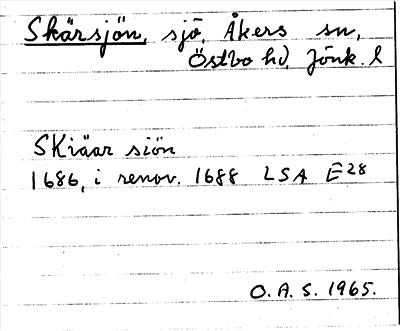 Skärsjön, sjö, Åkers sn,
Östbo hd, Jönk. l
SKiäar siön
1686, i renov. 1688 LSA E28
O. A. S. 1965.